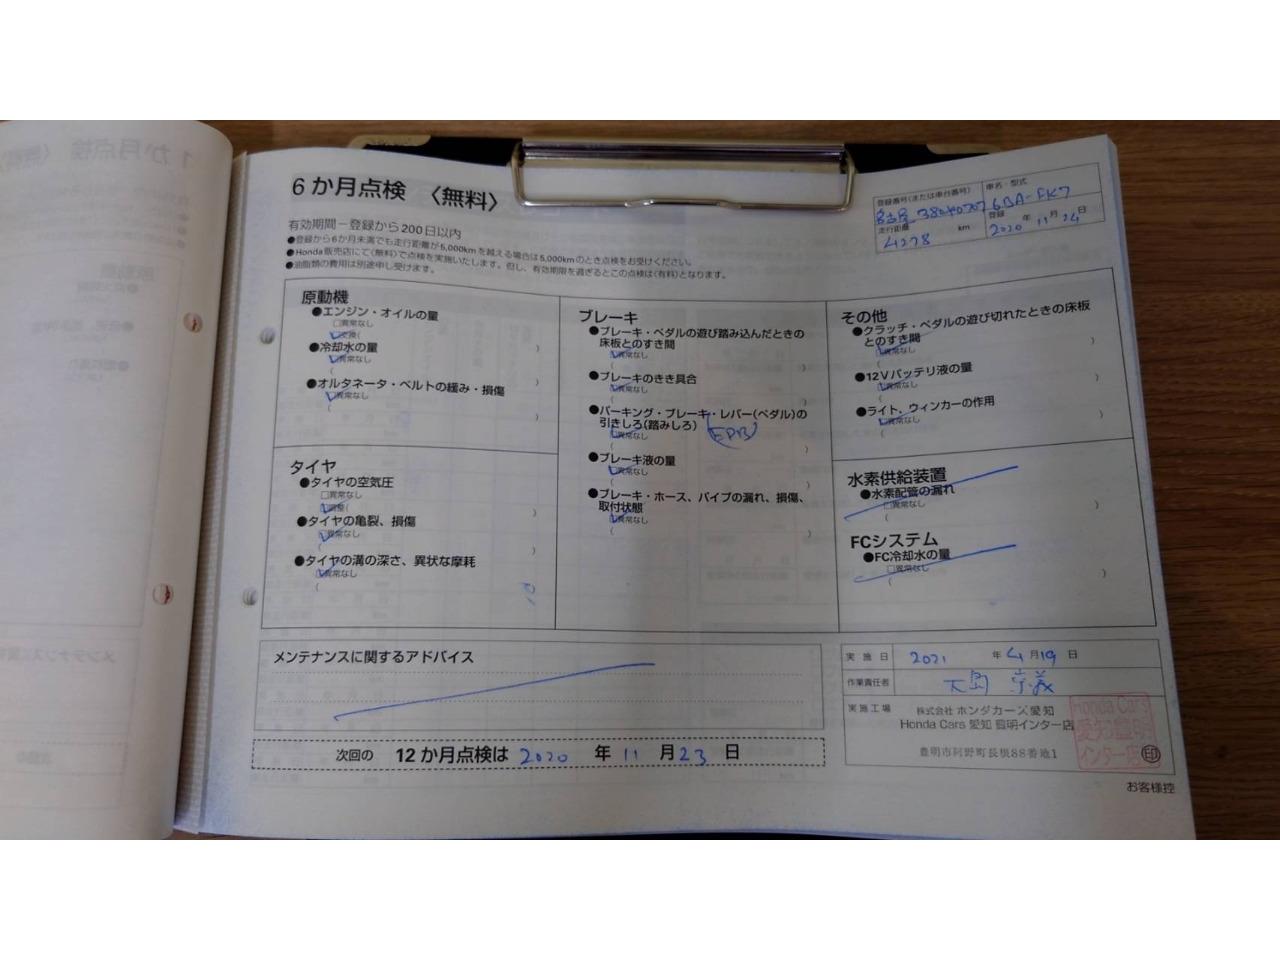 6か月点検 〈無料〉
有効期間ー登録から200日以内
●登録から6か月未満でも走行距離が5,000kmを越える場合は5,000kmのとき点検をお受けください。
●Honda販売店にて〈無料〉で点検を実施いたします。但し、有効期限を過ぎるとこの点検は〈有料〉となります。
●油脂類の費用は別途申し受けます。
登録番号(または車台番号)
車名・型式
名古屋
6BA-FK7
走行距離
4278 km
登録
2020 年 11 月 24 日
原動機
●エンジン・オイルの量
□異常なし
□交換(
)
●冷却水の量
□異常なし
(
)
●オルタネータ・ベルトの緩み・損傷
□異常なし
(
)
タイヤ
●タイヤの空気圧
□異常なし
□調整(
)
●タイヤの亀裂、損傷
□異常なし
(
)
●タイヤの溝の深さ、異状な摩耗
□異常なし
(
)
ブレーキ
●ブレーキ・ペダルの遊び踏み込んだときの
床板とのすき間
□異常なし
(
)
●ブレーキのきき具合
□異常なし
(
)
●パーキング・ブレーキ・レバー(ペダル)の
引きしろ(踏みしろ)
(EPB)
□異常なし
(
)
●ブレーキ液の量
□異常なし
(
)
●ブレーキ・ホース、パイプの漏れ、損傷、
取付状態
□異常なし
(
)
その他
●クラッチ・ペダルの遊び切れたときの床板
とのすき間
□異常なし
(
)
●12Vバッテリ液の量
□異常なし
(
)
●ライト、ウィンカーの作用
□異常なし
(
水素供給装置
●水素配管の漏れ
□異常なし
(
)
FCシステム
●FC冷却水の量
□異常なし
(
)
メンテナンスに関するアドバイス
次回の 12か月点検は 2020 年 11 月 23 日
実施日 2021 年 4 月 19 日
作業責任者
実施工場
株式会社 ホンダカーズ愛知
Honda Cars 愛知 豊明インター店
豊明市阿野町長根88番地1
Honda Cars
愛知豊明
インター店
印
お客様控